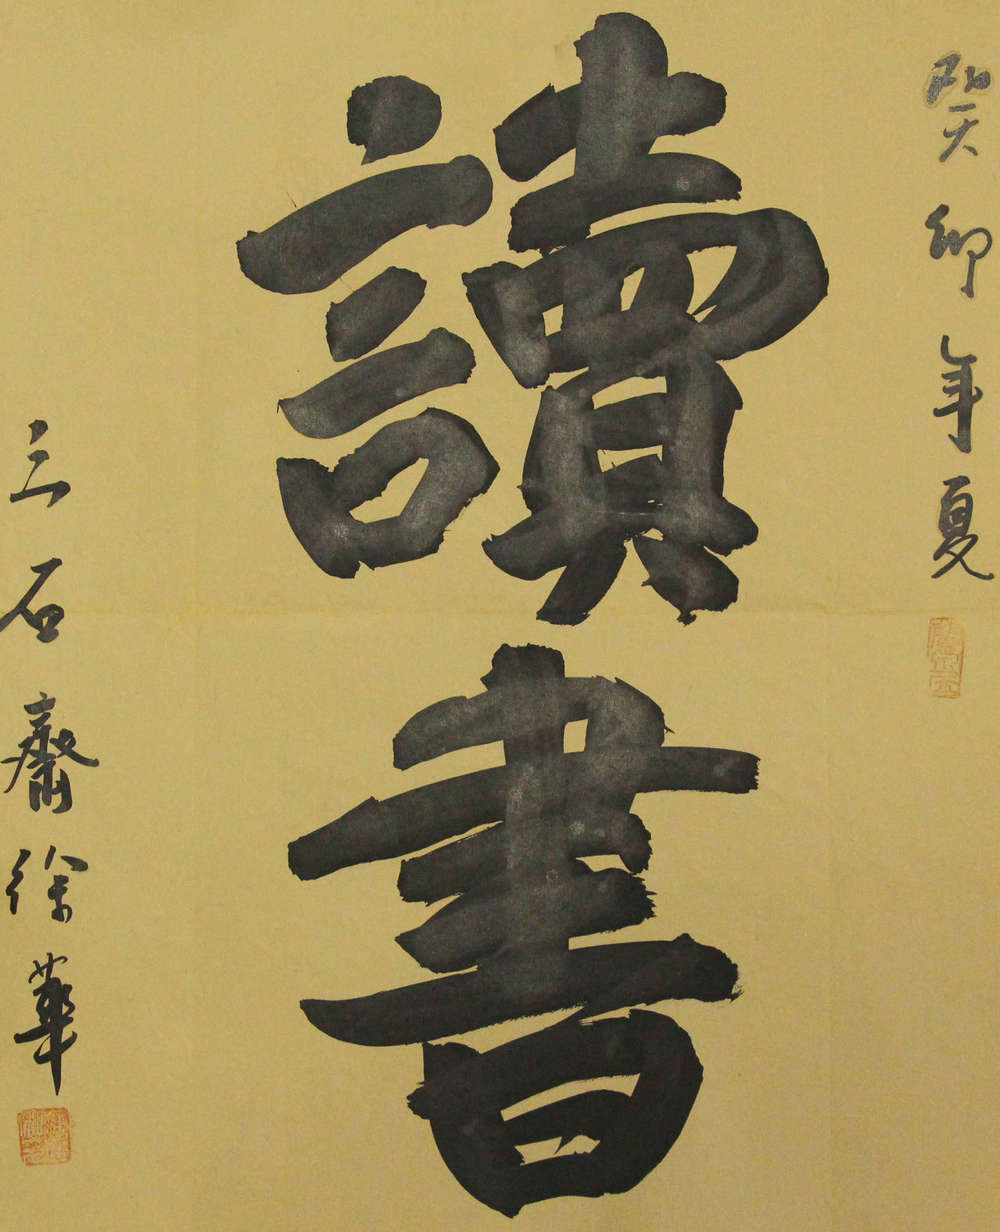 癸卯年夏
讀書
三石齋徐華